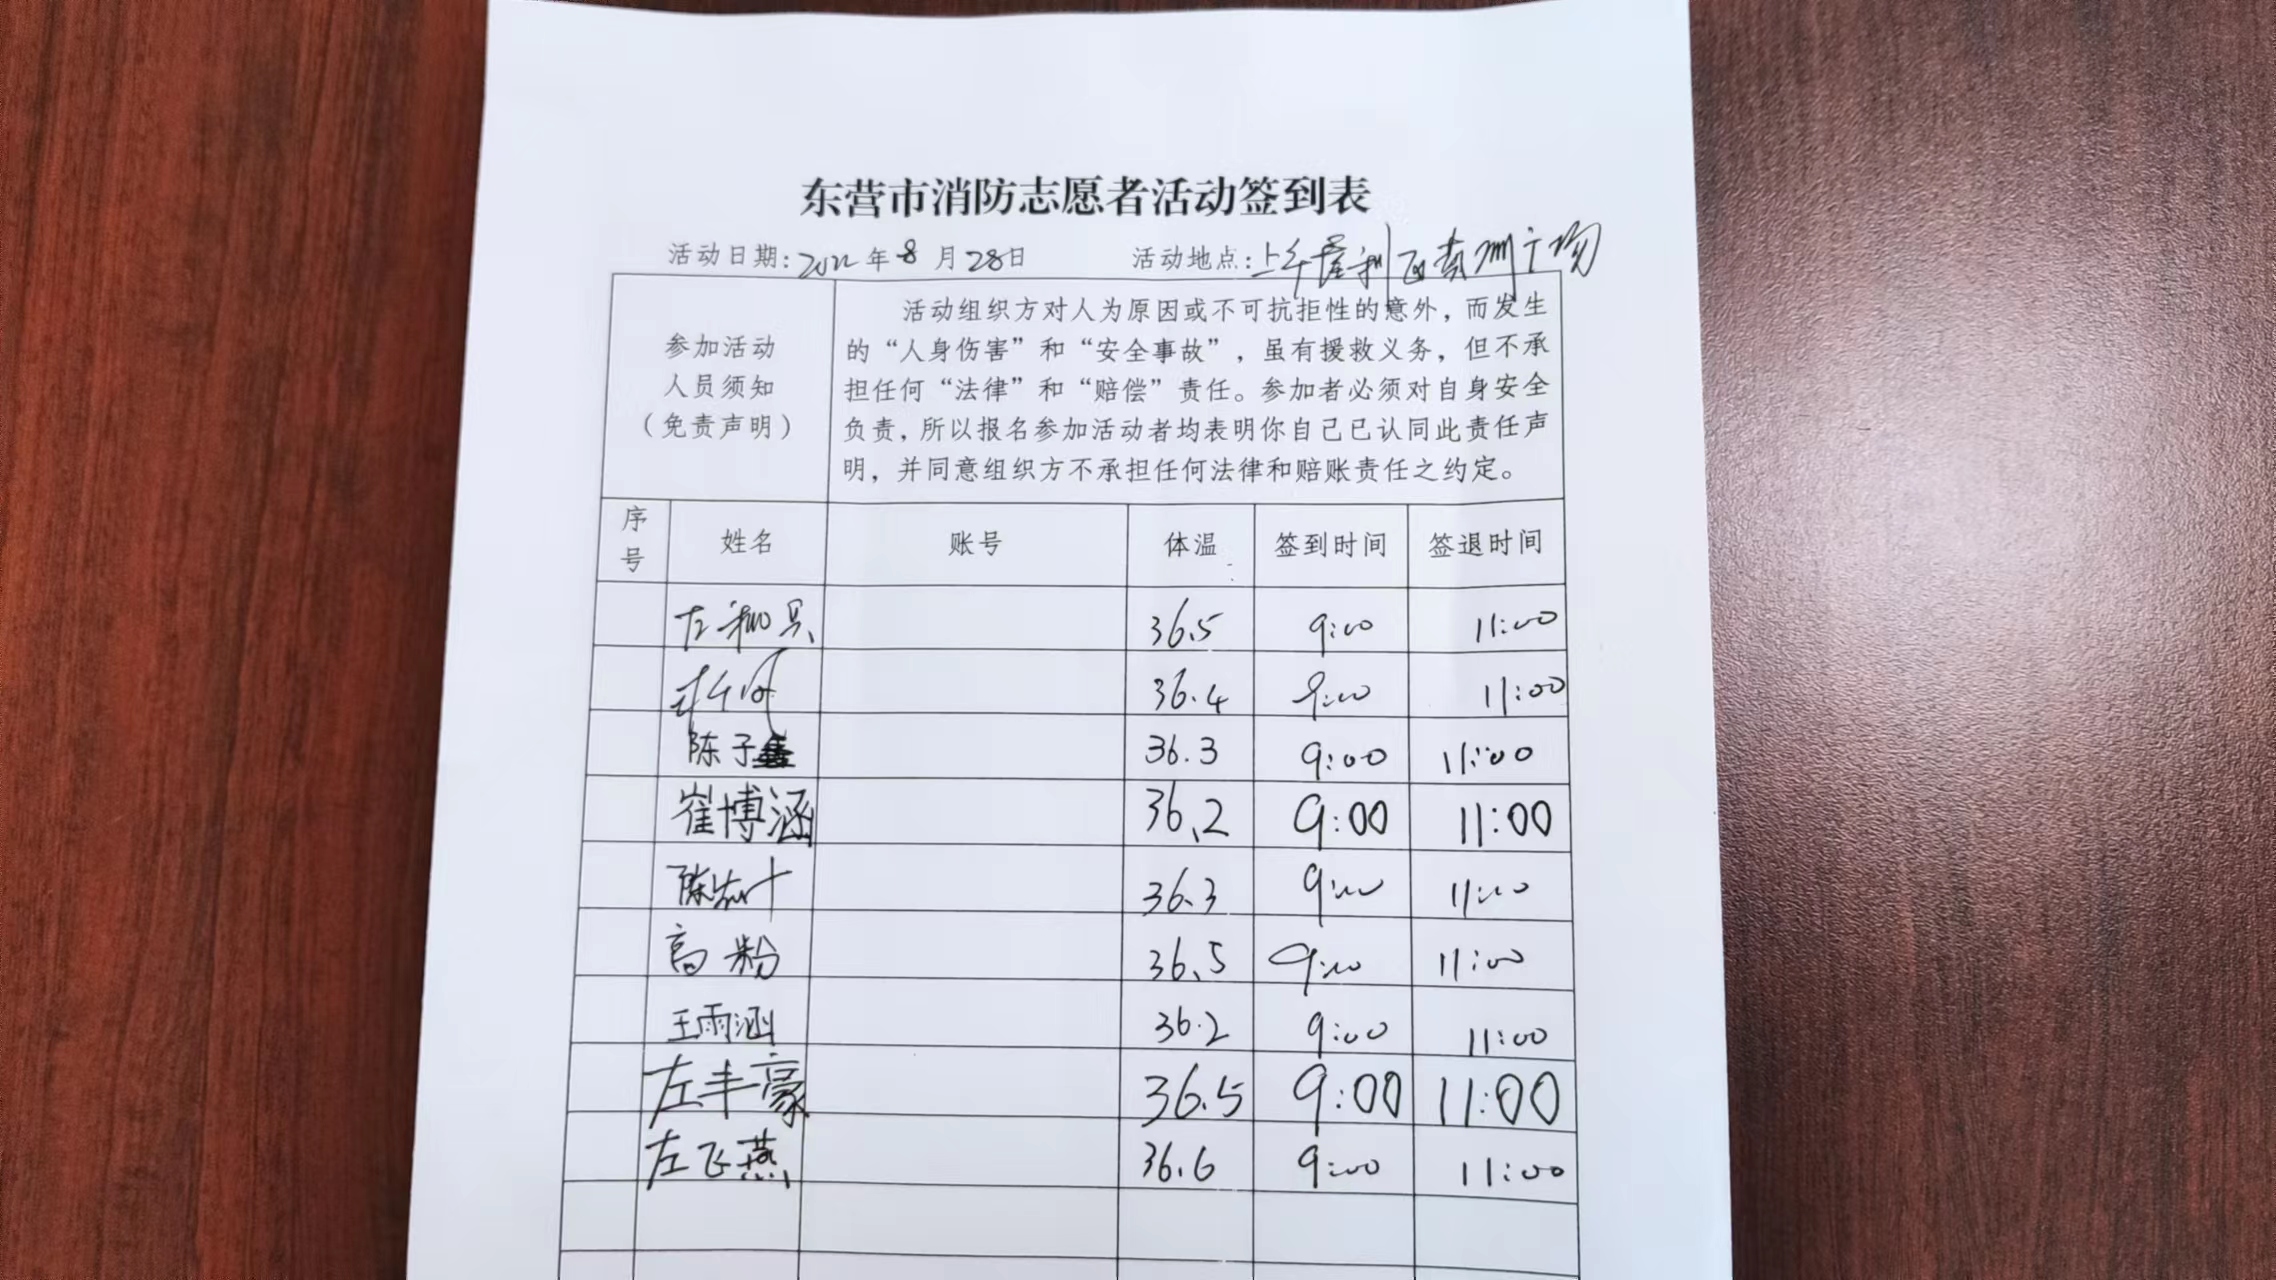 东营市消防志愿者活动签到表
活动日期:2022年8月28日 活动地点:
参加活动
人员须知
(免责声明)
活动组织方对人为原因或不可抗拒性的意外,而发生
的“人身伤害”和“安全事故”,虽有援救义务,但不承
担任何“法律”和“赔偿”责任。参加者必须对自身安全
负责,所以报名参加活动者均表明你自己已认同此责任声
明,并同意组织方不承担任何法律和赔账责任之约定。
序号 姓名 账号 体温 签到时间 签退时间
36.5 9:00 11:00
36.4 9:00 11:00
陈子 36.3 9:00 11:00
崔博涵 36.2 9:00 11:00
陈 36.3 9:00 11:00
高粉 36.5 9:00 11:00
王雨涵 36.2 9:00 11:00
左丰豪 36.5 9:00 11:00
左飞燕 36.6 9:00 11:00